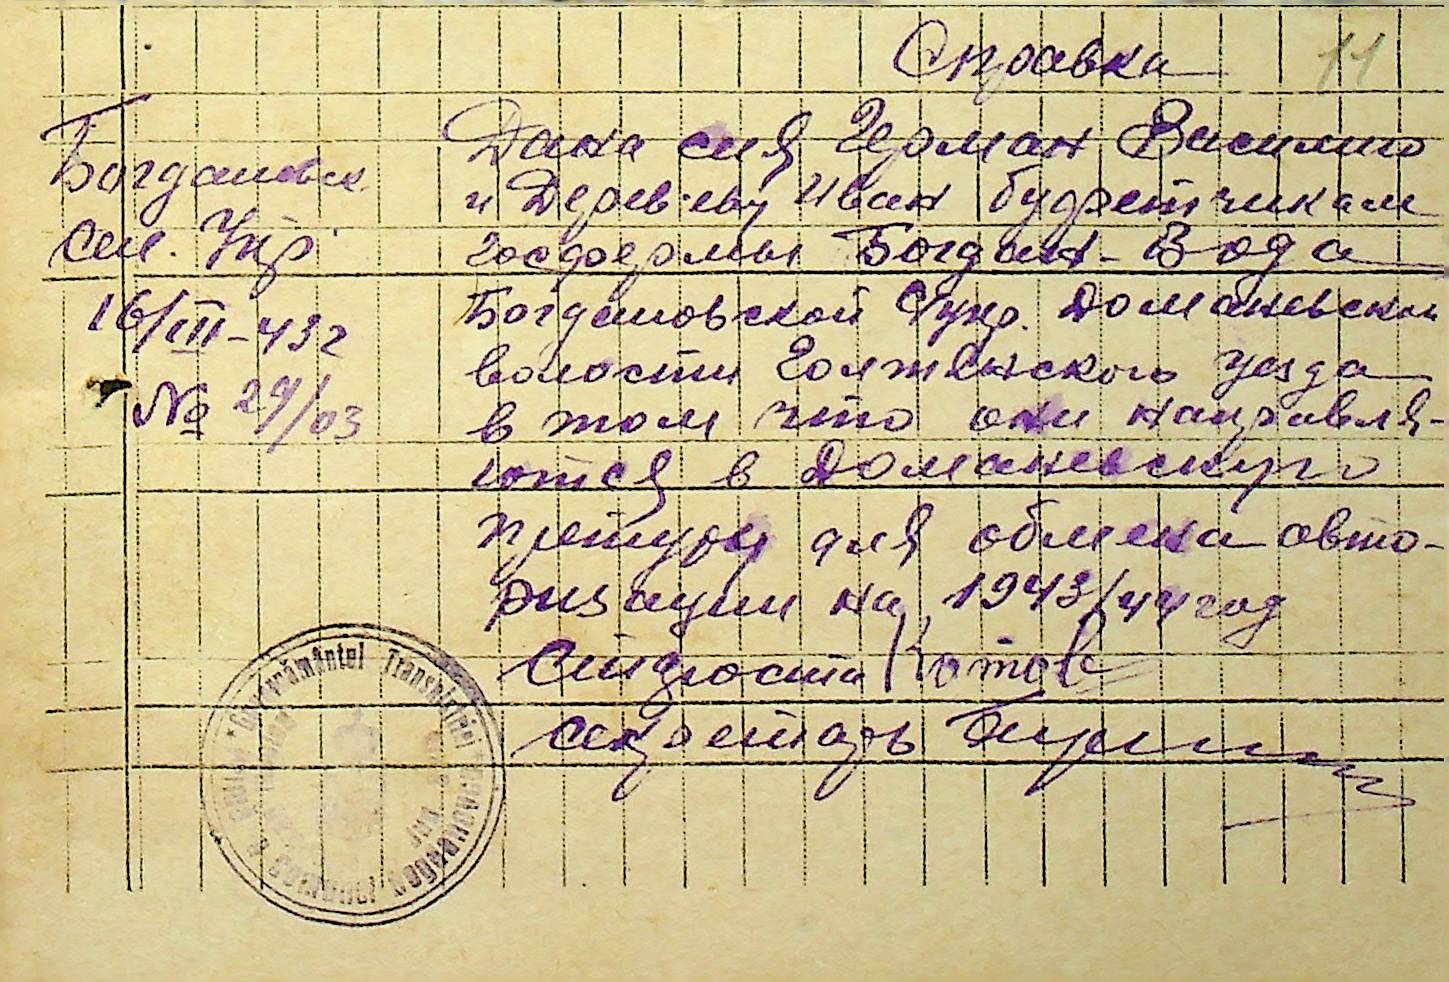 Справка 11
Богдановск
сел. Упр.
16/III-43г
№ 29/03
Дана сия Герман Василию
и Деревеву Иван буфетчикам
госфермы Богдан-Вода
Богдановской С/упр. Доманевской
волости Голтянского уезда
в том что они направля-
ются в Доманевскую
претуры для обмена авто-
ризации на 1943/44 год
Староста Котов
секретарь
Guvernământul Transnistriei